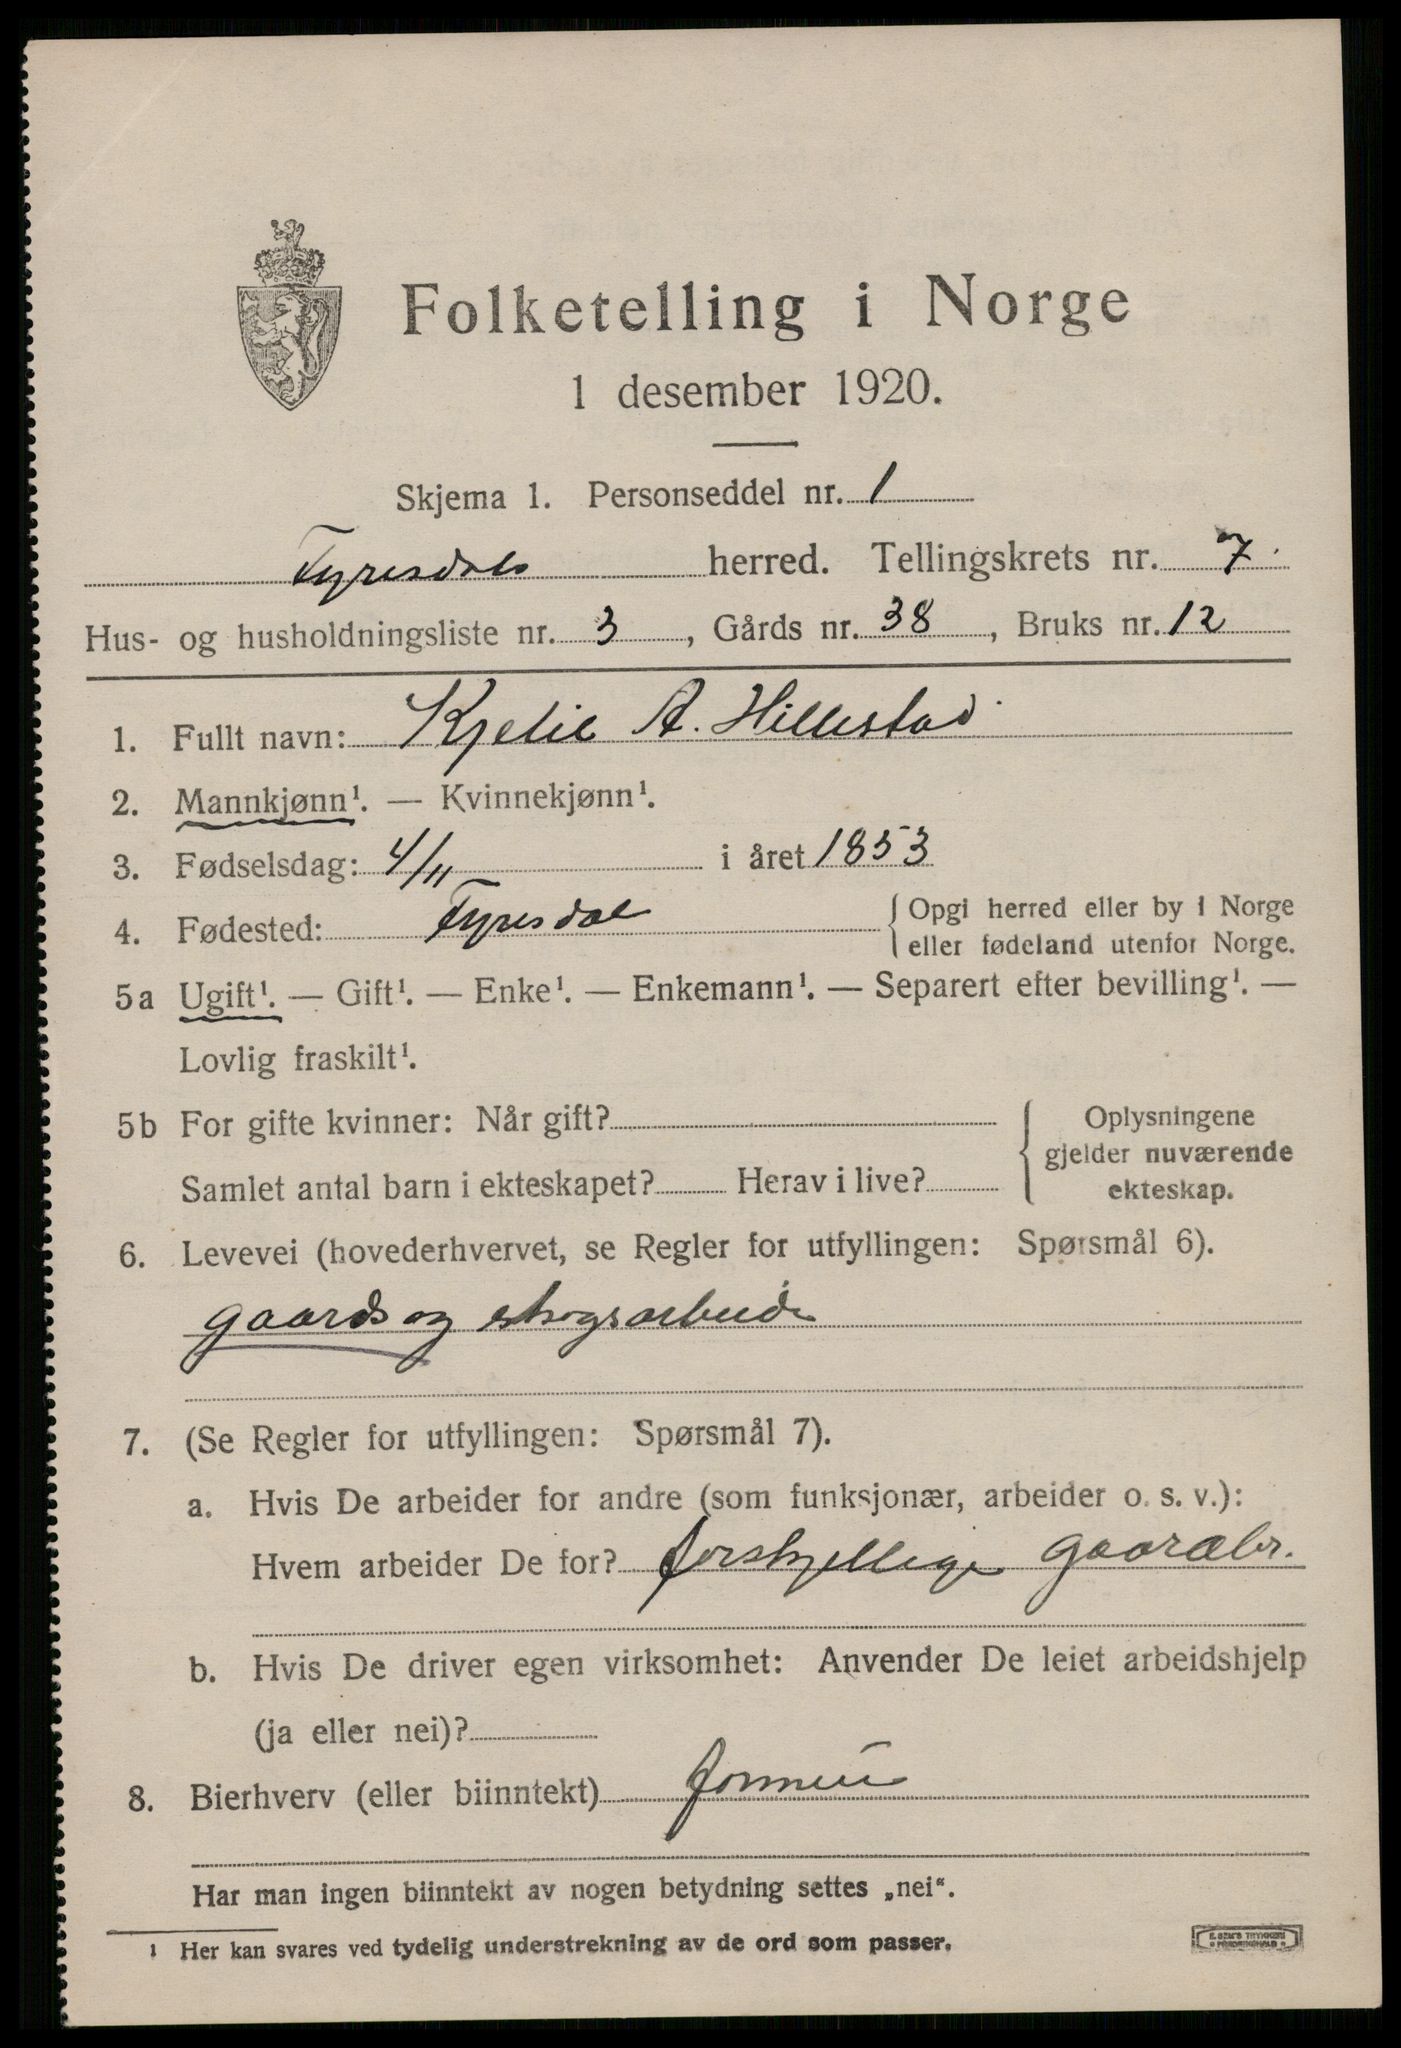 Folketelling i Norge
1 desember 1920.
Skjema 1. Personseddel nr. 1
Tyresdals herred. Tellingskrets nr. 7.
Hus- og husholdningsliste nr. 3, Gårds nr. 38, Bruks nr. 12
1. Fullt navn: Kjetil A. Hillestad
2. Mannkjønn¹. — Kvinnekjønn¹.
3. Fødselsdag: 4/11 i året 1853
4. Fødested: Tyresdal { Opgi herred eller by i Norge
eller fødeland utenfor Norge.
5a Ugift¹. — Gift¹. — Enke¹. — Enkemann¹. — Separert efter bevilling¹. —
Lovlig fraskilt¹.
5b For gifte kvinner: Når gift? { Oplysningene
gjelder nuværende
Samlet antal barn i ekteskapet? Herav i live? ekteskap.
6. Levevei (hovederhvervet, se Regler for utfyllingen: Spørsmål 6).
gaards og skogsarbeide
7. (Se Regler for utfyllingen: Spørsmål 7).
a. Hvis De arbeider for andre (som funksjonær, arbeider o. s. v.):
Hvem arbeider De for? forskjellige gaardbr.
b. Hvis De driver egen virksomhet: Anvender De leiet arbeidshjelp
(ja eller nei)?
8. Bierhverv (eller biinntekt)
Har man ingen biinntekt av nogen betydning settes „nei“.
1 Her kan svares ved tydelig understrekning av de ord som passer.
E. SEM'S TRYKKERI
FREDRIKSHALD